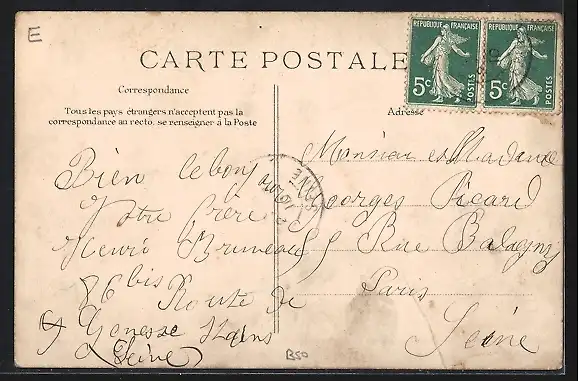 E
CARTE POSTALE
RÉPUBLIQUE FRANÇAISE
5c
POSTES
RÉPUBLIQUE FRANÇAISE
5c
POSTES
Correspondance
Tous les pays étrangers n'acceptent pas la
correspondance au recto, se renseigner à la Poste
Bien le bon
Votre frère
Henri Bruneau
86 bis Route de
Stains
Seine
Adresse
Monsieur et Madame
Georges Picard
5 Rue Balagny
Paris
Seine
B50